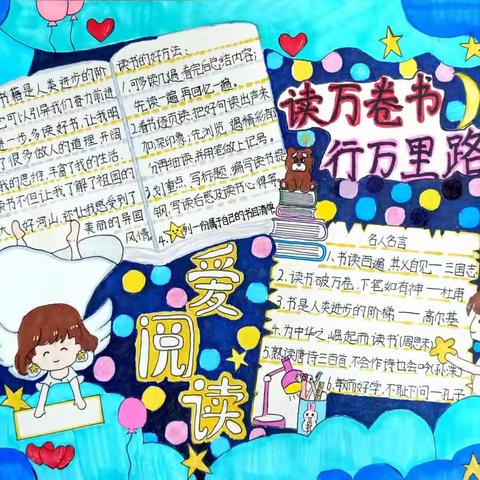 读万卷书
行万里路
书籍是人类进步的阶
它可以引导我们奋力前进
进一步,多读好书,让我明
了很多做人的道理,开阔
我的思维,丰富了我的生活.
读书不但让我了解了祖国的
大好河山,还让我感受到了
美丽的异国
风情
读书的好方法:
1.够读几遍,看完后总结内容;
先读一遍再回忆一遍.
2.看作逐页读,把好句读出声来
加深印象,先浏览,据情形部
分再细读,并用笔做上记号,
3.划重点,写标题,编写读书提
钢,写读后感及读书心得等.
4.列一份属于自己的书目清单
爱阅读
名人名言
1.书读百遍,其义自见——三国志
2.读书破万卷,下笔如有神——杜甫
3.书是人类进步的阶梯——高尔基
4.为中华之崛起而读书(周恩来)
5.熟读唐诗三百首,不会作诗也会吟(孙洙)
6.敏而好学,不耻下问—孔子